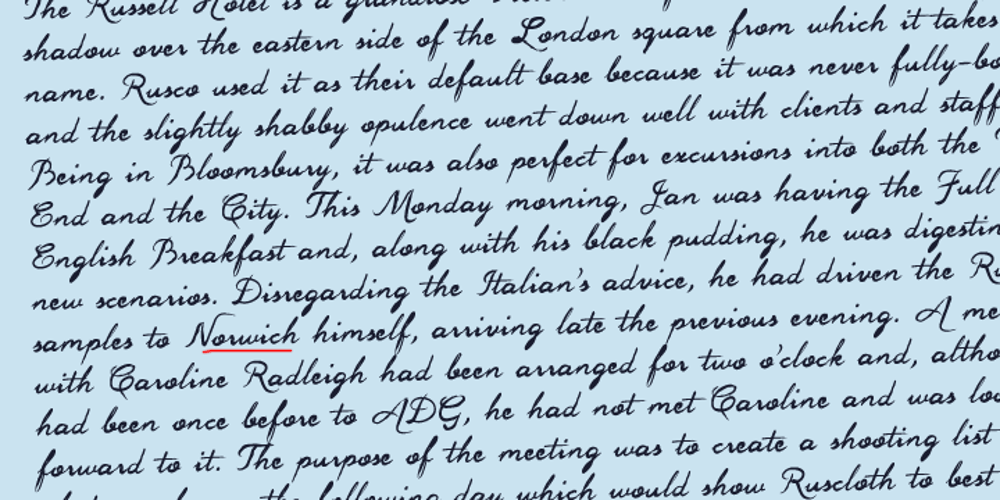 The Russell Hotel is a grandiose
shadow over the eastern side of the London square from which it takes
name. Rusco used it as their default base because it was never fully-bo
and the slightly shabby opulence went down well with clients and staff
Being in Bloomsbury, it was also perfect for excursions into both the
End and the City. This Monday morning, Jan was having the Full
English Breakfast and, along with his black pudding, he was digestin
new scenarios. Disregarding the Italian's advice, he had driven the Ru
samples to Norwich himself, arriving late the previous evening. A me
with Caroline Radleigh had been arranged for two o'clock and, altho
had been once before to ADG, he had not met Caroline and was loo
forward to it. The purpose of the meeting was to create a shooting list
the following day which would show Ruscloth to best